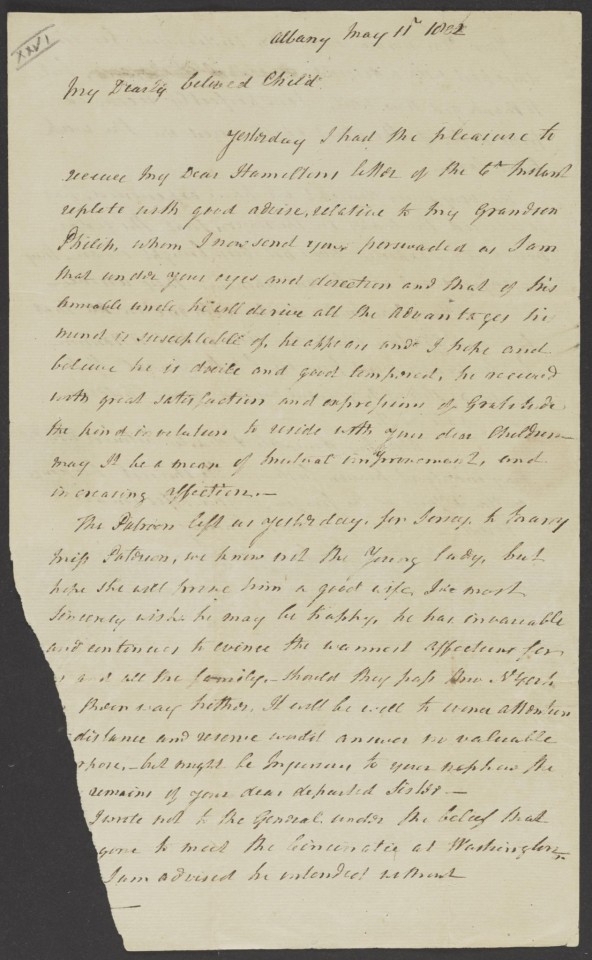 XXVI
Albany May 11th 1802
My Dearly beloved Child.
Yesterday I had the pleasure to
receive My Dear Hamiltons letter of the 6th Instant
replete with good advise, relative to my Grandson
Philip, whom I now send you persuaded as I am
that under your eyes and direction and that of his
Amiable uncle he will derive all the advantages his
mind is susceptable of, he appears and I hope and
believe he is docile and good tempered, he received
with great satisfaction and expressions of Gratitude
the kind invitation to reside with your dear Children
may It be a mean of mutual improvement, and
increasing affection.—
The Patroon left us yesterday, for Jersey, to marry
Miss Paterson, we know not the Young lady, but
hope she will prove him a good wife, I most
sincerely wish he may be happy, he has invariable
and continues to evince the warmest affections for
us and all the family,— should they pass thro N York
their way hither, It will be well to evince attention
distance and reserve would answer no valuable
pose,— but might be Injurious to your nephew the
remains of your dear departed Sister —
I wrote not to the General under the belief that
gone to meet the Cincinnatie at Washington
I am advised he intended